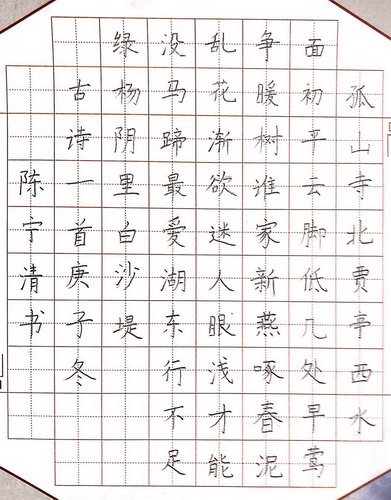 孤山寺北贾亭西水
面初平云脚低几处早莺
争暖树谁家新燕啄春泥
乱花渐欲迷人眼浅才能
没马蹄最爱湖东行不足
绿杨阴里白沙堤
古诗一首庚子冬
陈宁清书